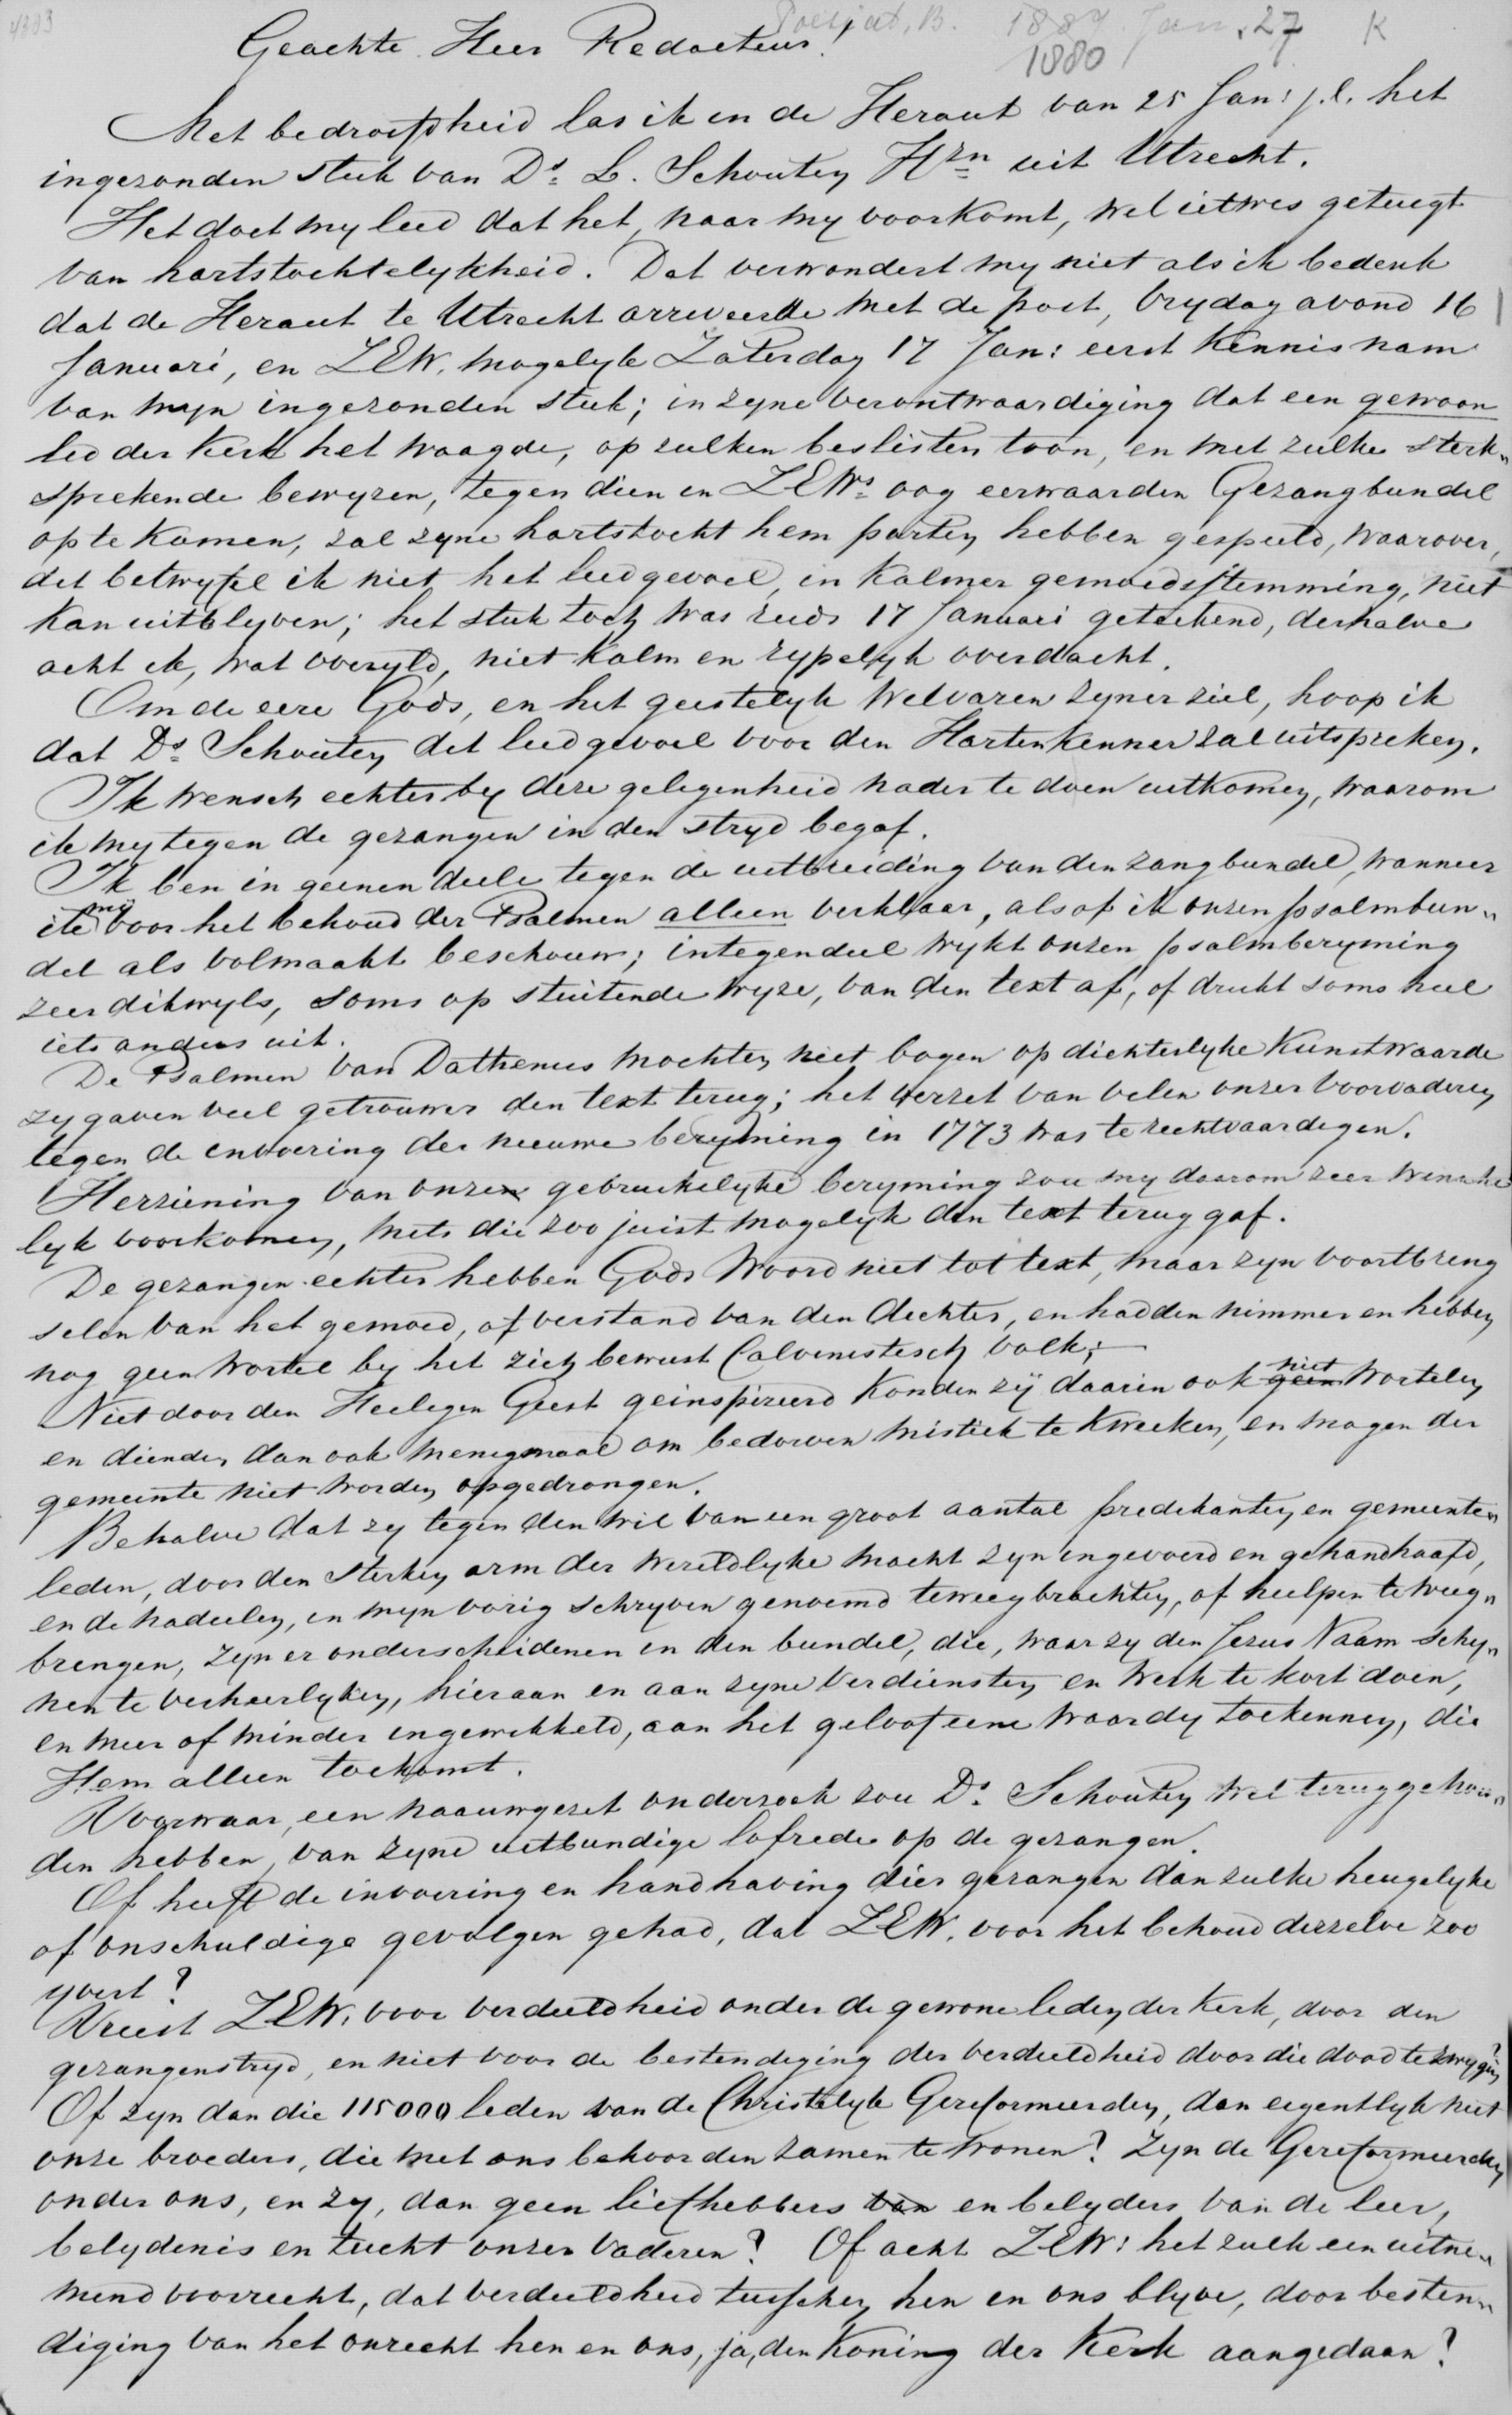 4383
Poesjat, B. 1887. Jan. 27 K
1880
Geachte Heer Redacteur!
Met bedroefdheid las ik in de Heraut van 25 Jan: j.l. het
ingezonden stuk van Ds. L. Schouten Hzn uit Utrecht.
Het doet my leed dat het, naar my voorkomt, wel ietwes getuigt
van hartstochtelykheid. Dat verwondert my niet als ik bedenk
dat de Heraut te Utrecht arriveerde met de post, Vrydag avond 16
Januari, en ZEW. mogelyk Zaterdag 17 Jan: eerst kennis nam
van myn ingezonden stuk; in zyne verontwaardiging dat een gewoon
lid der kerk het waagde, op zulken beslisten toon, en met zulke sterk„
sprekende bewyzen, tegen dien in ZEWs. oog eerwaarden Gezangbundel
op te komen, zal zyne hartstocht hem parten hebben gespeeld, waarover,
dit betwyfel ik niet het leedgevoel, in kalmer gemoedsstemming, niet
kan uitblyven; het stuk toch was reeds 17 Januari geteekend, derhalve
acht ik, wat overyld, niet kalm en rypelyk overdacht.
Om de eere Gods, en het geestelyk welvaren zyner ziel, hoop ik
dat Ds. Schouten dit leedgevoel voor den Hartenkenner zal uitspreken.
Ik wensch echter by deze gelegenheid nader te doen uitkomen, waarom
ik my tegen de gezangen in den stryd begaf.
Ik ben in geenen deele tegen de uitbreiding van den zangbundel, wanneer
ik mij voor het behoud der Psalmen alleen verklaar, alsof ik onzen psalmbun„
del als volmaakt beschouw; integendeel wykt onzen psalmberyming
zeer dikwyls, soms op stuitende wyze, van den text af, of drukt soms heel
iets anders uit.
De Psalmen van Dathenus mochten niet bogen op dichterlyke kunstwaarde
zy gaven veel getrouwer den text terug; het verzet van velen onzer voorvaderen
tegen de invoering der nieuwe beryming in 1773 was te rechtvaardigen.
Herziening van onzen gebruikelyke beryming zou my daarom zeer wensche
lyk voorkomen, mits die zoo juist mogelyk den text terug gaf.
De gezangen echter hebben Gods Woord niet tot text, maar zyn voortbreng
selen van het gemoed, of verstand van den dichter, en hadden nimmer en hebben
nog geen wortel by het zich bewust Calvinistisch volk;
Niet door den Heiligen Geest geinspireerd konden zij daarin ook geen niet wortelen
en dienden dan ook menigmaal om bedorven mistiek te kweeken, en mogen der
gemeente niet worden opgedrongen.
Behalve dat zy tegen den wil van een groot aantal predikanten en gemeente„
leden, door den sterken arm der wereldlyke macht zyn ingevoerd en gehandhaafd,
en de nadeelen, in myn vorig schryven genoemd teweegbrachten, of hielpen te weeg„
brengen, zyn er onderscheidenen in den bundel, die, waar zy den Jezus Naam schy„
nen te verheerlyken, hieraan en aan zyne verdiensten en werk te kort doen,
en meer of minder ingewikkeld, aan het geloof eene waardy toekennen, die
Hem alleen toekomt.
Voorwaar, een naauwgezet onderzoek zou Ds. Schouten wel teruggehou„
den hebben van zyne uitbundige lofrede op de gezangen.
Of heeft de invoering en handhaving dier gezangen dan zulke heugelyke
of onschuldige gevolgen gehad, dat ZEW. voor het behoud derzelve zoo
yvert?
Vreest ZEW. voor verdeeldheid onder de gewone leden der kerk, door den
gezangenstryd, en niet voor de bestendiging der verdeeldheid door die dood te zwygen?
Of zyn dan die 115000 leden van de Christelyk Gereformeerden, dan eigentlyk niet
onze broeders, die met ons behoorden zamen te wonen? Zyn de Gereformeerden
onder ons, en zy, dan geen liefhebbers van en belyders van de leer,
belydenis en tucht onzer vaderen? Of acht ZEW: het zulk een uitne„
mend voorrecht, dat verdeeldheid tusschen hen en ons blyve, door besten„
diging van het onrecht hen en ons, ja, den Koning der Kerk aangedaan?